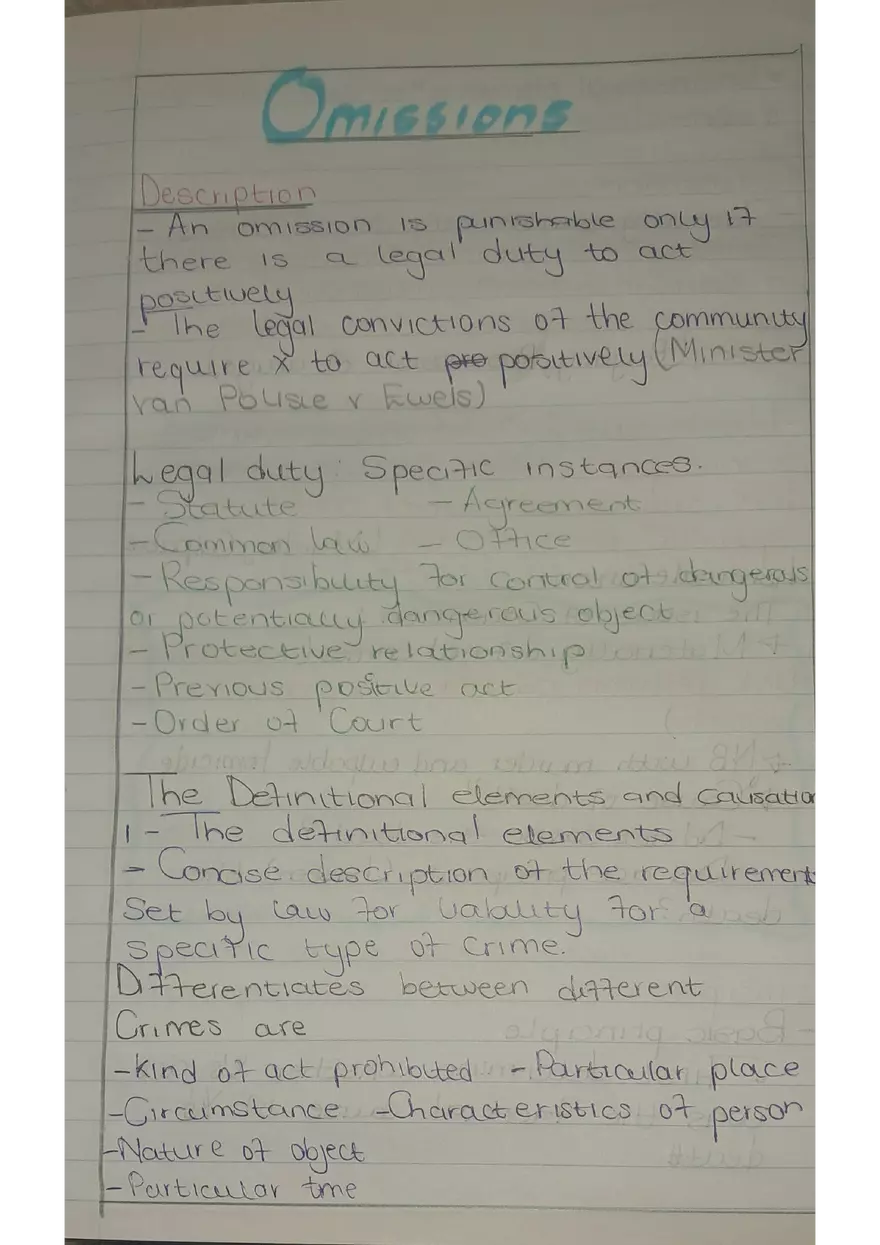 Omissions
Description
- An omission is punishable only if
there is a legal duty to act
positively
- The legal convictions of the community
require X to act pre positively (Minister
van Polisie v Ewels)
Legal duty: Specific instances.
- Statute - Agreement
- Common law - Office
- Responsibility for control of dangerous
or potentially dangerous object
- Protective relationship
- Previous positive act
- Order of Court
The Definitional elements and causation
1 - The definitional elements
- Concise description of the requirement
Set by law for liability for a
specific type of crime.
Differentiates between different
Crimes are
- Kind of act prohibited - Particular place
- Circumstance - Characteristics of person
- Nature of object
- Particular tme